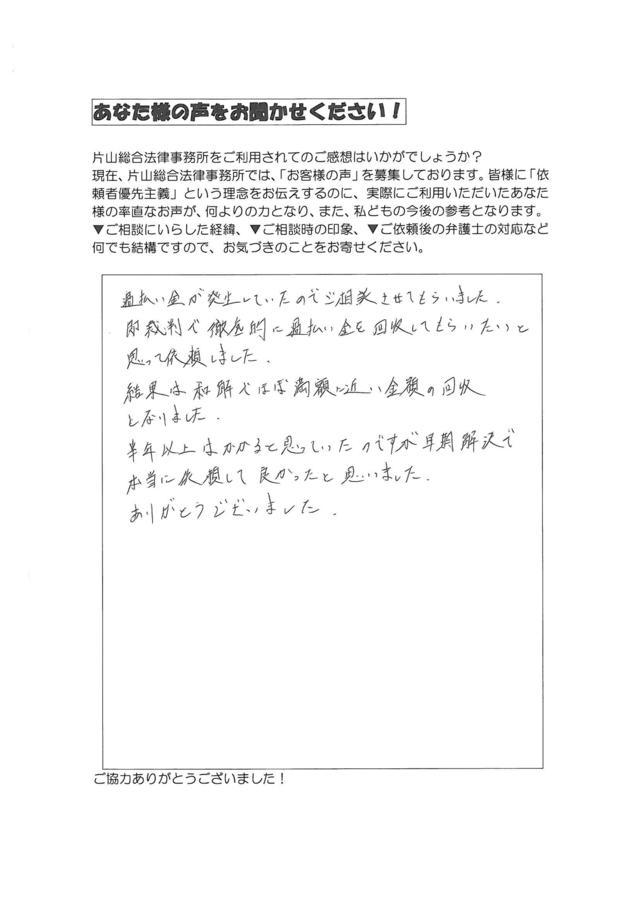 あなた様の声をお聞かせください！
片山総合法律事務所をご利用されてのご感想はいかがでしょうか？
現在、片山総合法律事務所では、「お客様の声」を募集しております。皆様に「依
頼者優先主義」という理念をお伝えするのに、実際にご利用いただいたあなた
様の率直なお声が、何よりの力となり、また、私どもの今後の参考となります。
▼ご相談にいらした経緯、▼ご相談時の印象、▼ご依頼後の弁護士の対応など
何でも結構ですので、お気づきのことをお寄せください。
過払い金が発生していたのでご相談させてもらいました.
即裁判で徹底的に過払い金を回収してもらいたいと
思って依頼しました.
結果は和解でほぼ満額に近い金額の回収
となりました.
半年以上はかかると思っていたのですが早期解決で
本当に依頼して良かったと思いました.
ありがとうございました.
ご協力ありがとうございました！